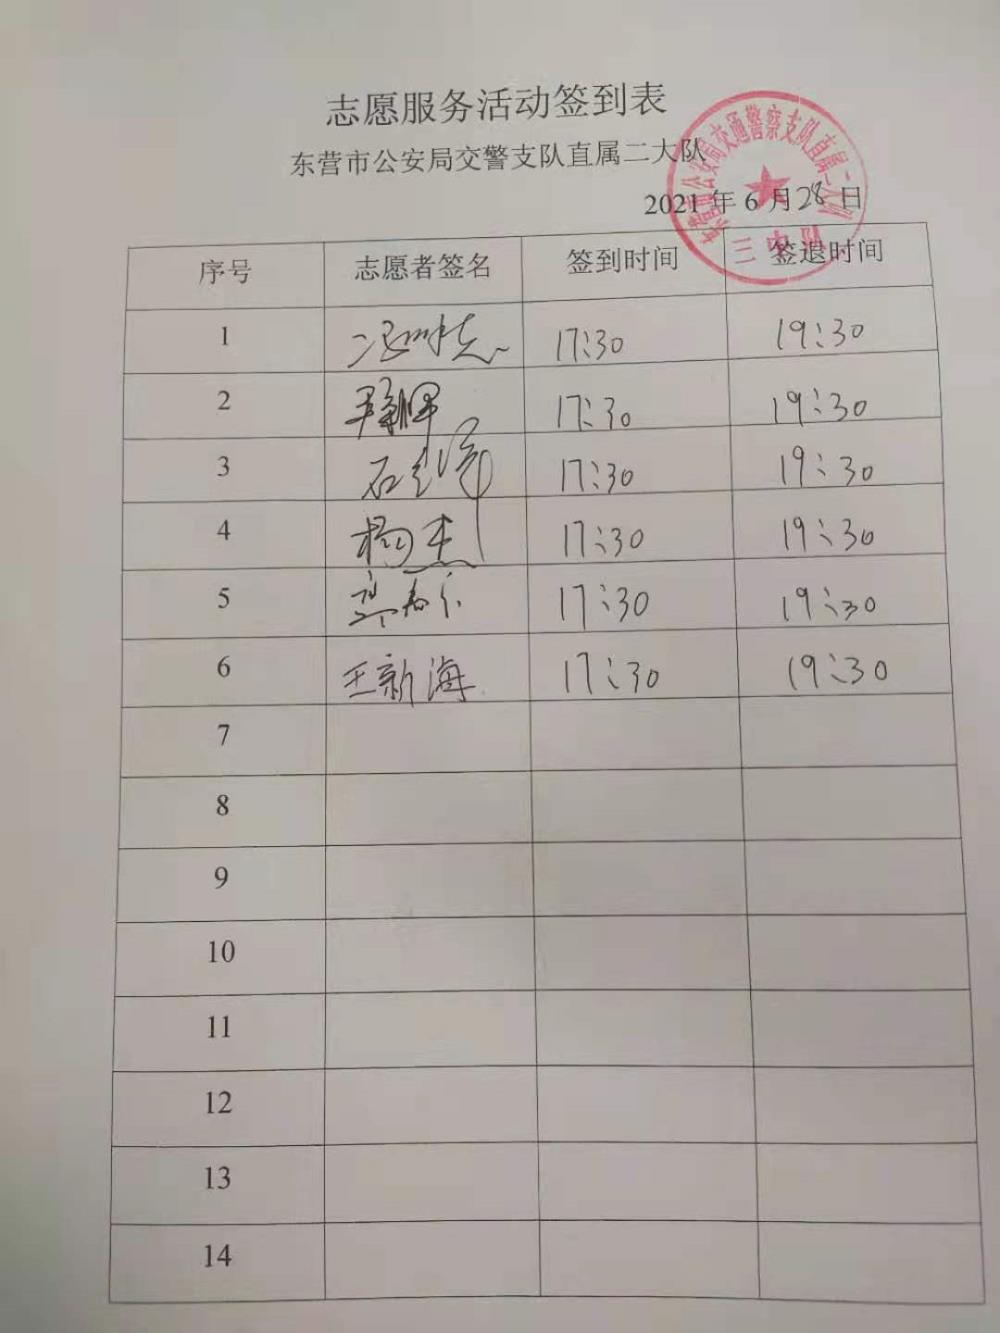 志愿服务活动签到表
东营市公安局交警支队直属二大队
东营市公安局交通警察支队直属二大队
三中队
2021 年 6 月 28 日
序号 志愿者签名 签到时间 签退时间
1 17:30 19:30
2 17:30 19:30
3 石 17:30 19:30
4 杨杰 17:30 19:30
5 17:30 19:30
6 王新海 17:30 19:30
7
8
9
10
11
12
13
14